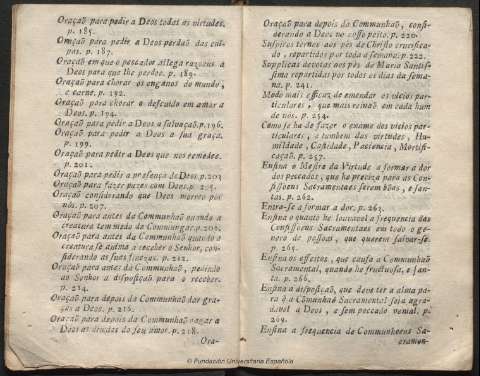 Oraçaõ para pedir a Deos todas as virtudes.
p. 185.
Oraçaõ para pedir a Deos perdaõ das culpas.
p. 187.
Oraçaõ em que o pescador allega razoens a
Deos para que lhe perdoe. p. 189.
Oraçaõ para chorar os enganos do mundo,
e carne. p. 192.
Oraçaõ para chorar o descuido em amor a
Deos. p. 194.
Oraçaõ para pedir a Deos a salvaçaõ. p. 196.
Oraçaõ para pedir a Deos a sua graça.
p. 199.
Oraçaõ para pedir a Deos que nos remedee.
p. 201.
Oraçaõ para pedir a presença de Deos. p. 203
Oraçaõ para fazer pazes com Deos. p. 205.
Oraçaõ considerando que Deos morreo por
nós. p. 207.
Oraçaõ para antes da Communhaõ quando a
creatura tem medo da Communhaõ. p. 209.
Oraçaõ para antes da Communhaõ quando a
creatura se anima a receber o Senhor, con-
siderando as suas finezas. p. 212.
Oraçaõ para antes da Communhaõ, pedindo
ao Senhor a disposiçaõ para o receber.
p. 214.
Oraçaõ para depois da Communhaõ dar gra-
ças a Deos. p. 216.
Oraçaõ para depois da Communhaõ pagar a
Deos as dividas do seu amor. p. 218.
Ora-
Oraçaõ para depois da Communhaõ, consi-
derando a Deos no nosso peito. p. 220.
Suspiros ternos aos pés de Christo crucifica-
do, repartidos por toda a semana. p. 222.
Supplicas devotas aos pés de Maria Santis-
sima repartidas por todos os dias da sema-
na. p. 241.
Modo mais efficaz de emendar os vicios par-
ticulares, que mais reinaõ em cada hum
de nós. p. 254.
Como se ha de fazer o exame dos vicios par-
ticulares, e tambem das virtudes, Hu-
mildade, Castidade, Paciencia, Mortifi-
caçaõ. p. 257.
Ensina o Mestre da Virtude a formar a dor
dos peccados, que he preciza para as Con-
fissoens Sacramentaes serem boas, e san-
tas. p. 262.
Entra-se a formar a dor. p. 263.
Ensina o quanto he louvavel a frequencia das
Confissoens Sacramentaes em todo o ge-
nero de pessoas, que querem salvar-se.
p. 265.
Ensina os effeitos, que causa a Communhaõ
Sacramental, quando he fructuosa, e san-
ta. p. 266.
Ensina a disposiçaõ, que deve ter a alma pa-
ra q̃ a Cõmunhaõ Sacramental seja agra-
davel a Deos, e sem peccado venial. p.
269.
Ensina a frequencia de Communhoens Sa-
cramen-
© Fundación Universitaria Española